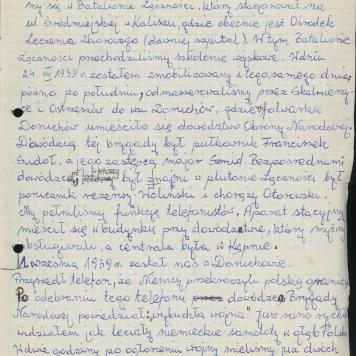 my się w Batalionie Łączności, który stacjonował na
ul. Śródmiejskiej w Kaliszu, gdzie obecnie jest Ośrodek
Leczenia Zborowego (dawniej szpital). W tym Batalionie
Łączności przechodziliśmy szkolenie wojskowe. W dniu
24. VIII 1939 r. zostałem zmobilizowany i tego samego dnia
późno po południu, odmaszerowaliśmy przez Skalmierzy-
ce i Ostrzeszów do wsi Doruchów, gdzie w folwarku
Doruchów umieściło się dowództwo Obrony Narodowej.
Dowódcą tej brygady był pułkownik Franciszek
Sudoł, a jego zastępcą major Bezpośrednimi
dowódcami był w plutonie Łączności był
porucznik rezerwy Woliński i chorąży Otorowski.
My pełniliśmy funkcję telefonistów, Aparat stacyjny
mieścił się w budynku przy dowództwie, który myśmy
obsługiwali, a centrala była w Kępnie.
1 września 1939 r. zastał nas w Doruchowie.
Przyszedł telefon, że Niemcy przekroczyli polską granicę
Po odebraniu tego telefonu dowódca Brygady
Narodowej powiedział: "wybuchła wojna" Już rano
widziałem jak leciały niemieckie samoloty w głąb Polski
W dwie godziny po ogłoszeniu wojny mieliśmy już dwóch